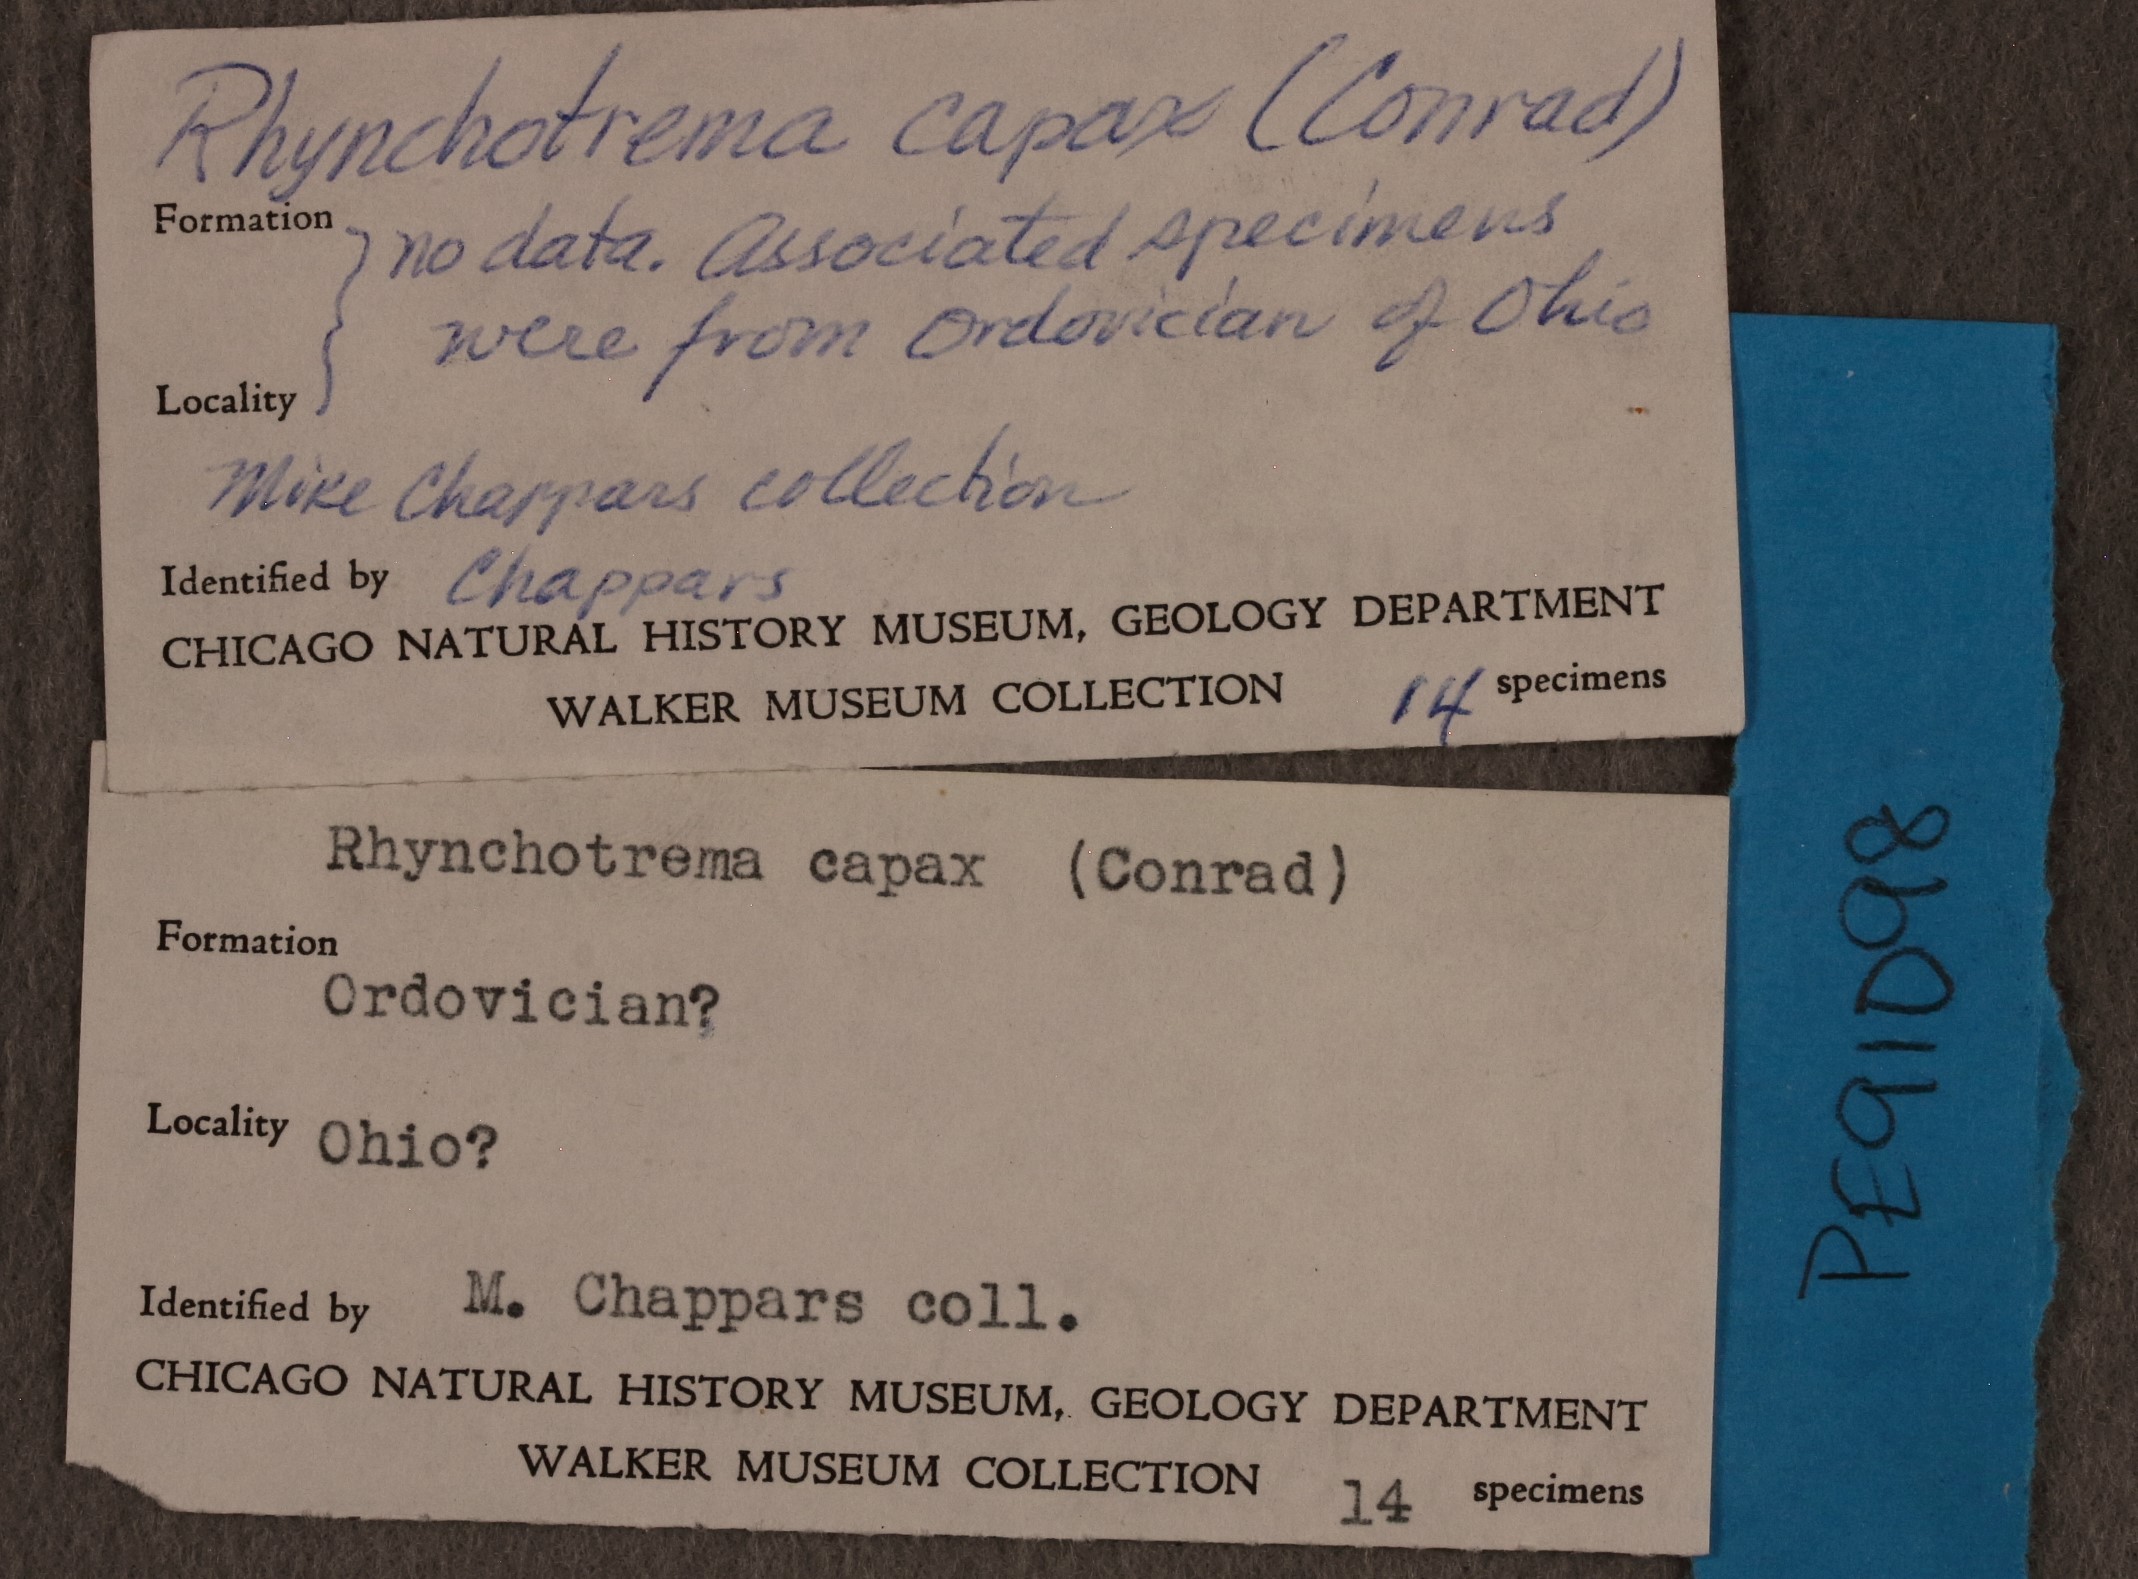 Rhynchotrema capax (Conrad)
Formation } no data. Associated specimens
were from Ordovician of Ohio
Locality
Mike Chappars collection
Identified by Chappars
CHICAGO NATURAL HISTORY MUSEUM, GEOLOGY DEPARTMENT
WALKER MUSEUM COLLECTION 14 specimens
Rhynchotrema capax (Conrad)
Formation
Ordovician?
Locality Ohio?
Identified by M. Chappars coll.
CHICAGO NATURAL HISTORY MUSEUM, GEOLOGY DEPARTMENT
WALKER MUSEUM COLLECTION 14 specimens
PE91D98